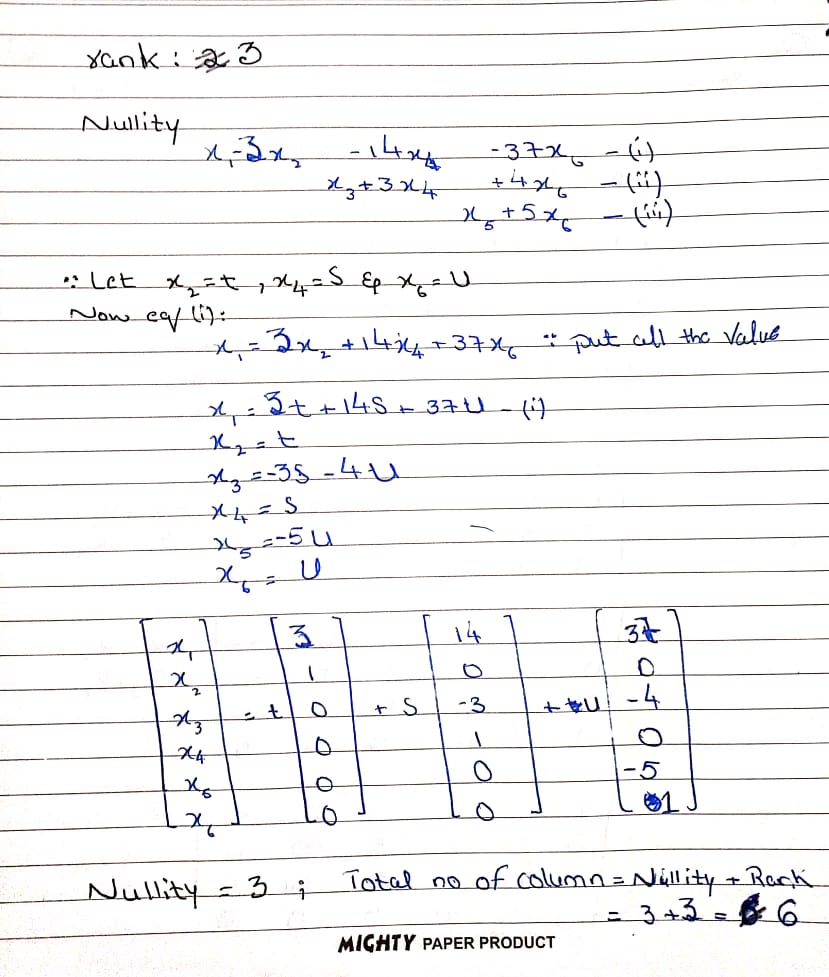 rank : 3
Nullity
x₁-3x₂ -14x₄ -37x₆ - (i)
x₃+3x₄ +4x₆ - (ii)
x₅+5x₆ - (iii)
∵ Let x₂=t , x₄=S & x₆=U
Now eq/ (i):
x₁ = 3x₂ +14x₄ +37x₆ ∵ put all the Value
x₁ = 3t +14S + 37U - (i)
x₂ = t
x₃ = -3S -4U
x₄ = S
x₅ = -5U
x₆ = U
[x₁ [3 [14 [37
x₂ 1 0 0
x₃ = t 0 + S -3 + U -4
x₄ 0 1 0
x₅ 0 0 -5
x₆] 0] 0] 1]
Nullity = 3 ; Total no of column = Nullity + Rank
= 3+3 = 6
MIGHTY PAPER PRODUCT